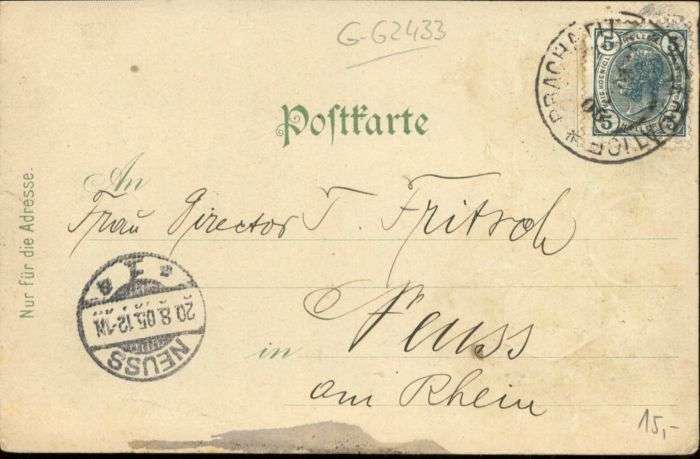 G-G2433
5 HELLER 5
PRACHATITZ
PRACHATICE
Postkarte
An
Frau Director T. Fritsch
Neuss
in
am Rhein
Nur für die Adresse.
NEUSS
20.8.05.12-1N
15,-